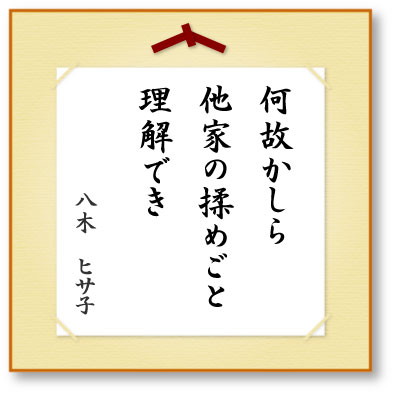 何故かしら
他家の揉めごと
理解でき
八木 ヒサ子